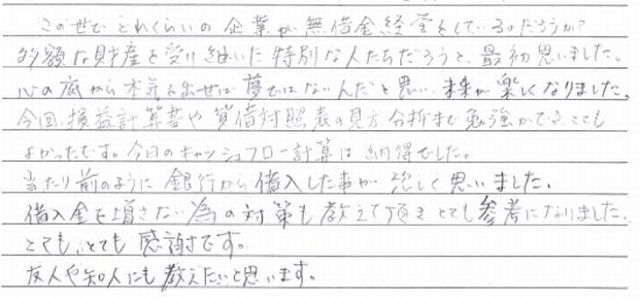 この世でどれくらいの企業が無借金経営をしているのだろうか?
多額な財産を受け継いだ特別な人たちだろうと、最初思いました。
心の底から本気を出せば夢ではないんだと思い、未来が楽しくなりました。
今回、損益計算書や貸借対照表の見方、分析まで勉強ができ、とても
よかったです。今日のキャッシュフロー計算は納得でした。
当たり前のように銀行から借入した事が恐しく思いました。
借入金を増さない為の対策も教えて頂きとても参考になりました。
とても、とても感謝です。
友人や知人にも教えたいと思います。